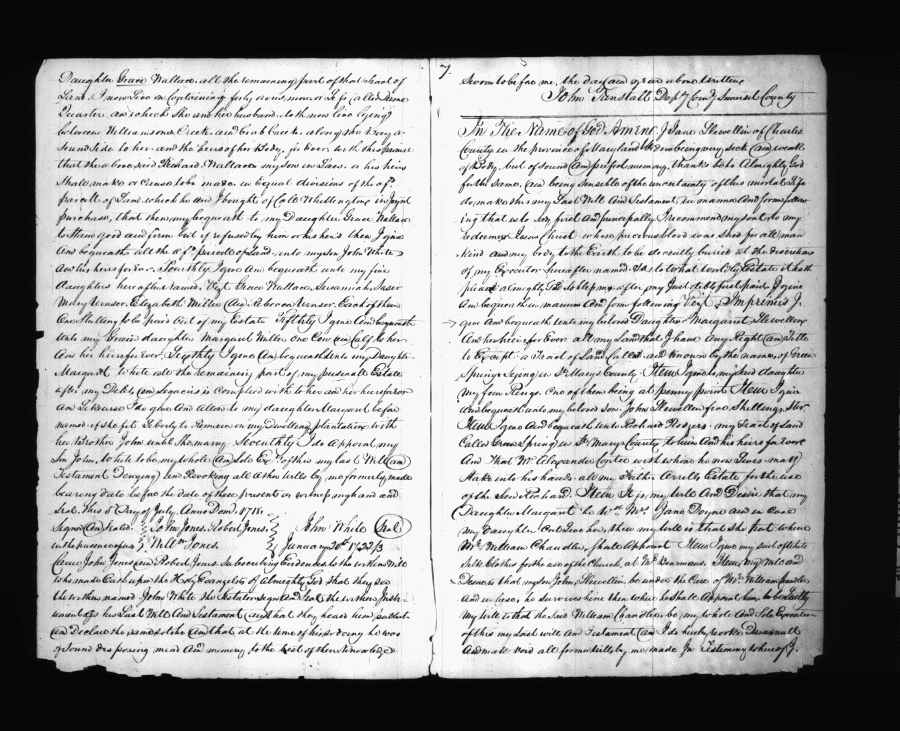 Daughter Grace Wallace all the remaining part of that Tract of
Land I now Live on Containing forty acres, more or Less called Home
Quarter on which She and her husband doth now live lying
between Williamsons Creek and Crab Creek along the Bay or
Sound Side to her and the heirs of her Body for Ever with this proviso
that the above said Richard Wallace my son in Law or his heirs
Shall make or Cause to be made in Equal divisions of the afd
parcell of Land which he and I bought of Coll Whittington in Joynt
purchase, that then my bequeath to my Daughter Grace Wallace
to Stand good and firm but if refused by him or his heirs then I give
And bequeath all the afd parcell of Land unto my son John White
And his heirs for Ever. Fourthly I give And bequeath unto my five
Daughters hereafter named, Vizt Grace Wallace, Susannah
Mary Vensor Elizabeth Miller And Rebecca Vensor Each of them
One Shilling to be paid Out of my Estate Fifthly I give And bequeath
unto my Grand daughter Margaret Miller One Cow and Calf to her
And her heirs for Ever. Sixthly I give And bequeath unto my Daughter
Margaret White all the remaining part of my personall Estate
after my Debts and Legacies is Complied with to her and her heirs for Ever
and Likewise I do give And allow to my daughter Margaret before
named if she fit Liberty to Remain on my dwelling plantation with
her Brother John until She marry. Seventhly I do Appoint my
Son John White to be my whole And Sole Exr of this my last Will and
Testament Denying and Revoking all other wills by me formerly made
bearing date before the date of these presents as witness my hand and
Seal this 5 Day of July Anno Dom: 1718.
Signed and Sealed John Jones. Robert Jones. John White Seal
in the presence of us Willm Jones. January 20th 1722/3
Came John Jones and Robert Jones Subscribing Evidences to the within Will
who made Oath upon the Holy Evangelists of Almighty God that they see
the within named John White the Testator sign And Seal the within Instrument
as his Last Will And Testament and that they heard him publish
and Declare the same so to be and that at the time of his so doing he was
of Sound disposing mind And memory to the best of their knowledge
7.
Sworn to before me, the day and year above Written
John Tunstall Depty Comy Somerset County
In The Name of God Amen. I Jane Llewellin of Charles
County in the province of Maryland Widow being very sick and weak
of Body but of sound and perfect memory, thanks be to Almighty God
for the same, and being sensible of the uncertainty of this mortal Life
do make this my Last Will And Testament in manner and form following
ing that is to Say first and principally I recommend my soul to my
redeemer Jesus Christ whose precious blood was shed for all man
kind and my body to the Earth to be decently buried at the discretion
of my Executor hereafter named. As to what worldly Estate it hath
pleased Almighty God to bless me, after my Just debts first paid I give
And bequeath in manner And form following Vizt. Imprimis I
give And bequeath unto my beloved Daughter Margaret Llewellin
And her heirs for Ever all my Land that I have Any Right and Title
to Except a Tract of Land Called and known by the name of Green
Spring Lying in St Marys County Item I give to my said daughter
my four Rings. One of them being at penny point Item I give
And bequeath unto my beloved Son John Llewellin five Shillings Ster
Item I give And bequeath unto Richard Rogers my Tract of Land
Called Green Spring in St Marys County to him And his heirs for Ever
And That Mr Alexander Contee with whom he now Lives may
take into his hands all my Father Estate for the use
of the Said Richard. Item It is my Will And Desire that my
Daughter Margaret be Wth Mrs Jane Doyne and in Case
my Daughter leave her, then my Will is that She put where
Mr. William Chandler Shall Appoint Item I give my suit of White
Silk Clothes for the use of the Church at Mr Boarmans. Item My Will and
Desire is that my son John Llewellin be under the Care of Mr. William Chandler
And in Case, he survives him then where he Shall Appoint him to be Lastly
My Will is that the said William Chandler be my whole And Sole Executor
of this my last will And Testament and I do hereby revoke Disannull
And make void all former Wills by me made In Testimony whereof I